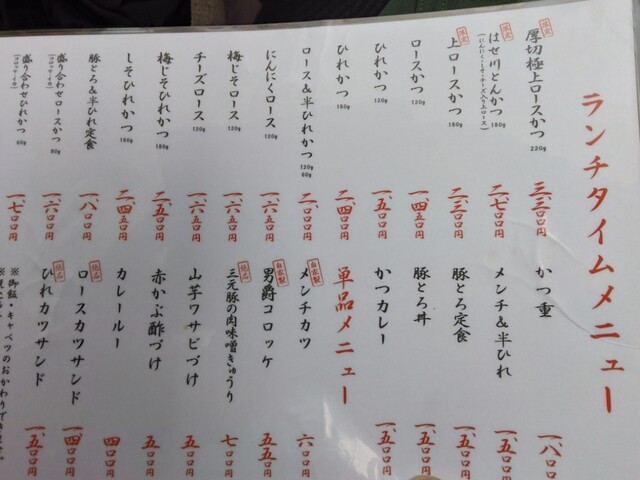 ランチタイムメニュー
限定
厚切極上ロースかつ 220g 三、三〇〇円
限定
はせ川とんかつ 180g 二、七〇〇円
(にんにく・しそ・チーズ入り上ロース)
限定
上ロースかつ 180g 二、三〇〇円
ロースかつ 120g 一、四五〇円
ひれかつ 120g 一、五〇〇円
ひれかつ 180g 二、四〇〇円
ロース&半ひれかつ 120g 60g 二、〇〇〇円
にんにくロース 120g 一、六五〇円
梅じそロース 120g 一、六五〇円
チーズロース 120g 一、六五〇円
梅じそひれかつ 180g 二、五〇〇円
しそひれかつ 180g 二、四五〇円
豚とろ&半ひれ定食 一、八〇〇円
盛り合わせロースかつ 80g 一、六〇〇円
盛り合わせひれかつ 60g 一、七〇〇円
かつ重 一、八〇〇
メンチ&半ひれ 一、五〇〇円
豚とろ定食 一、五〇〇円
豚とろ丼 一、五〇〇円
かつカレー 一、五〇〇円
単品メニュー
自家製
メンチカツ 六〇〇円
自家製
男爵コロッケ 五五〇円
三元豚の肉味噌きゅうり 七〇〇円
山芋ワサビづけ 五〇〇円
赤かぶ酢づけ 五〇〇円
カレールー 四〇〇円
ロースカツサンド 一、四〇〇円
ひれカツサンド 一、五〇〇円
※御飯・キャベツのおかわりできます。